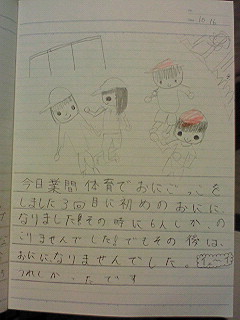 10.16
今日業間体育でおにごっこを
しました3回目に初めのおにに
なりました!!その時に6人しか、の
こりませんでした!!でもその後は、
おにになりませんでした。
うれしかったです